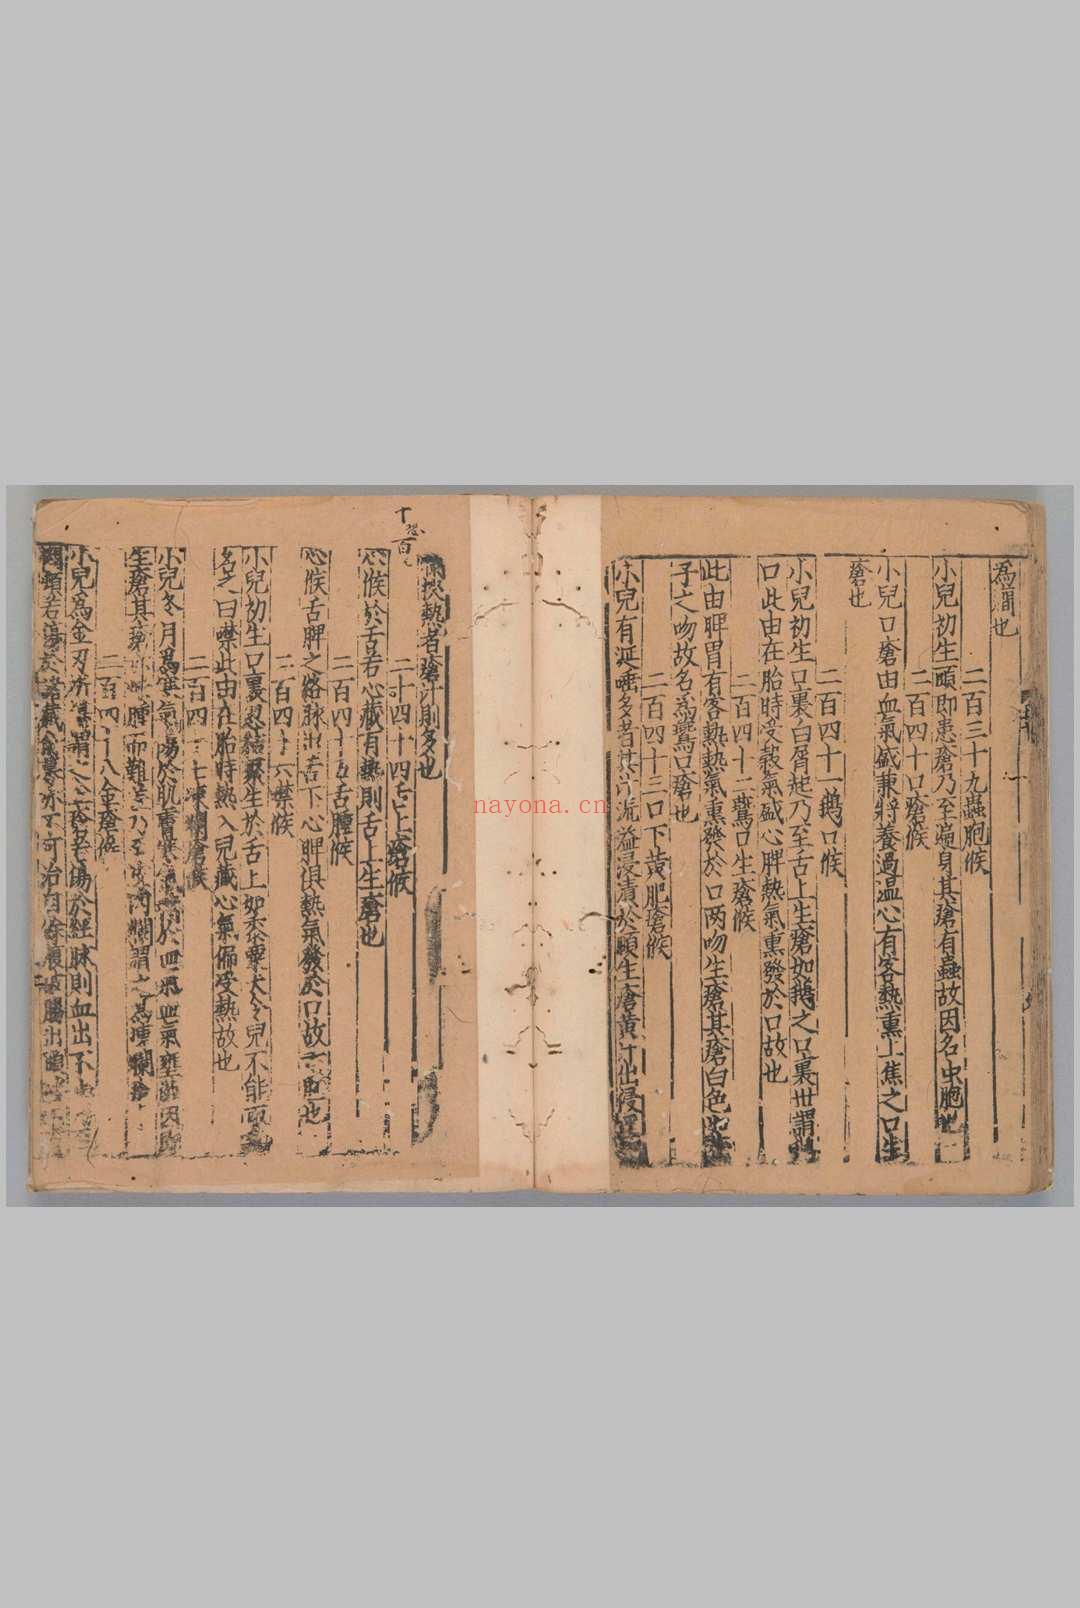 為間也
二百三十九蟲胞候
小兒初生頭即患瘡乃至遍身其瘡有蟲故因名虫胞也
二百四十口瘡候
小兒口瘡由血氣盛兼將養過温心有客熱熏上焦之口生
瘡也
二百四十一鵝口候
小兒初生口裏白屑起乃至舌上生瘡如鵝之口裏世謂
口此由在胎時受穀氣盛心脾熱氣熏發於口故也
二百四十二鷰口生瘡候
此由脾胃有客熱熱氣熏發於口两吻生瘡其瘡白色如
子之吻故名為鷰口瘡也
二百四十三口下黄肥瘡候
小兒有涎唾多者其汁流溢浸漬於頤生瘡黄汁出浸
挾熱者瘡汁則多也
二十四十四舌上瘡候
心候於舌若心藏有熱則舌上生瘡也
二百四十五舌腫候
心候舌脾之絡脉出舌下心脾俱熱氣發於口故舌腫也
二百四十六噤候
小兒初生口裏忽結聚生於舌上如黍粟大令兒不能
名之曰噤此由在胎時熱入兒藏心氣偏受熱故也
二百四十七凍爛瘡候
小兒冬月為寒氣傷於肌膚寒氣於血氣血氣壅澁因即
生瘡其腫而難乃至肉爛謂之為凍爛瘡
二百四十八金瘡候
小兒為金刃所傷謂之金瘡若傷於經脉則血出不
悶頓若傷於諸藏亦不可治自餘腹破腸出
十
恐
百